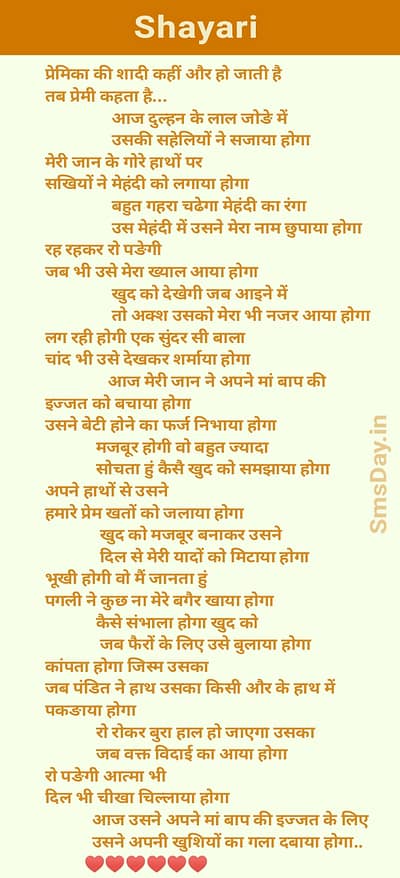 Shayari
प्रेमिका की शादी कहीं और हो जाती है
तब प्रेमी कहता है...
आज दुल्हन के लाल जोङे में
उसकी सहेलियों ने सजाया होगा
मेरी जान के गोरे हाथों पर
सखियों ने मेहंदी को लगाया होगा
बहुत गहरा चढेगा मेहंदी का रंगा
उस मेहंदी में उसने मेरा नाम छुपाया होगा
रह रहकर रो पङेगी
जब भी उसे मेरा ख्याल आया होगा
खुद को देखेगी जब आइने में
तो अक्श उसको मेरा भी नजर आया होगा
लग रही होगी एक सुंदर सी बाला
चांद भी उसे देखकर शर्माया होगा
आज मेरी जान ने अपने मां बाप की
इज्जत को बचाया होगा
उसने बेटी होने का फर्ज निभाया होगा
मजबूर होगी वो बहुत ज्यादा
सोचता हुं कैसै खुद को समझाया होगा
अपने हाथों से उसने
हमारे प्रेम खतों को जलाया होगा
खुद को मजबूर बनाकर उसने
दिल से मेरी यादों को मिटाया होगा
भूखी होगी वो मैं जानता हुं
पगली ने कुछ ना मेरे बगैर खाया होगा
कैसे संभाला होगा खुद को
जब फैरों के लिए उसे बुलाया होगा
कांपता होगा जिस्म उसका
जब पंडित ने हाथ उसका किसी और के हाथ में
पकङाया होगा
रो रोकर बुरा हाल हो जाएगा उसका
जब वक्त विदाई का आया होगा
रो पङेगी आत्मा भी
दिल भी चीखा चिल्लाया होगा
आज उसने अपने मां बाप की इज्जत के लिए
उसने अपनी खुशियों का गला दबाया होगा..
SmsDay.in